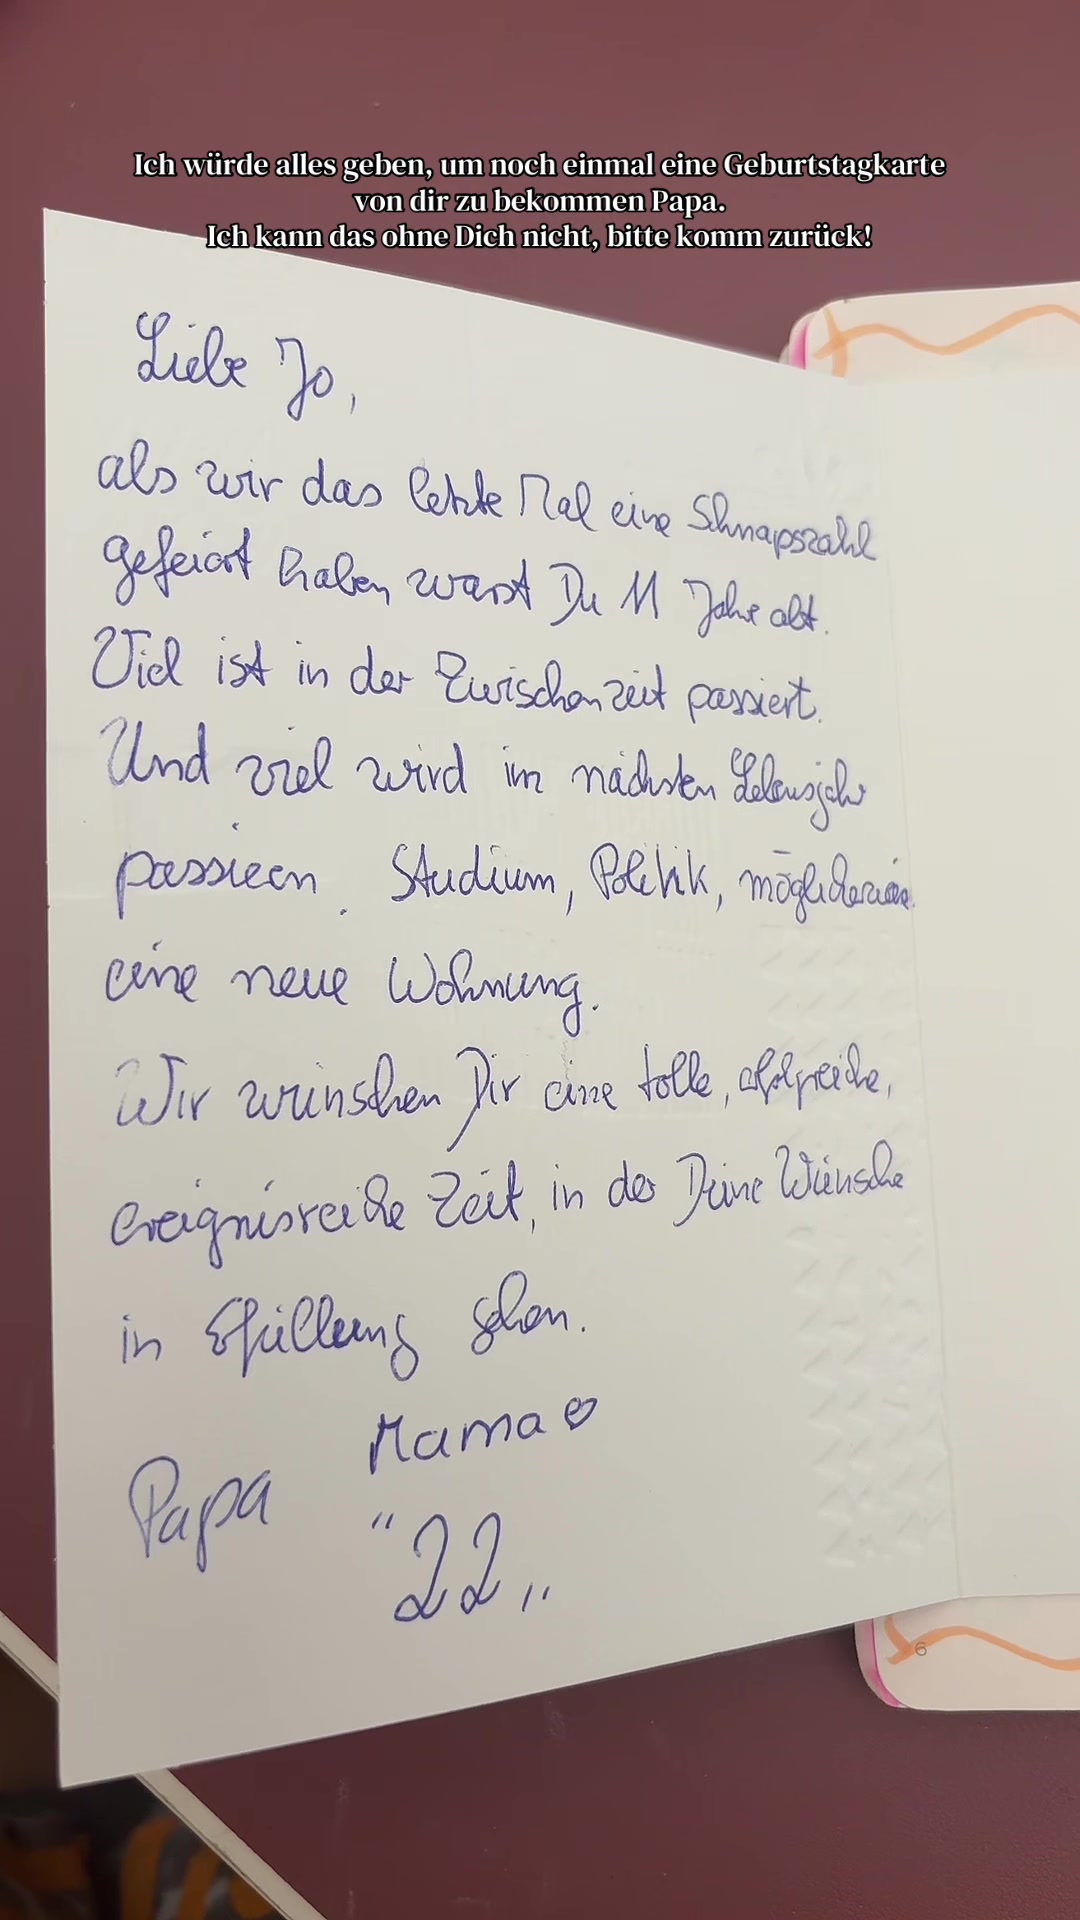 Ich würde alles geben, um noch einmal eine Geburtstagkarte
von dir zu bekommen Papa.
Ich kann das ohne Dich nicht, bitte komm zurück!
Liebe Jo,
als wir das letzte Mal eine Schnapszahl
gefeiert haben warst Du 11 Jahre alt.
Viel ist in der Zwischenzeit passiert.
Und viel wird im nächsten Lebensjahr
passieren. Studium, Politik, möglicherweise
eine neue Wohnung.
Wir wünschen Dir eine tolle, erfolgreiche,
ereignisreiche Zeit, in der Deine Wünsche
in Erfüllung gehen.
Mama ♡
Papa
"22"
6